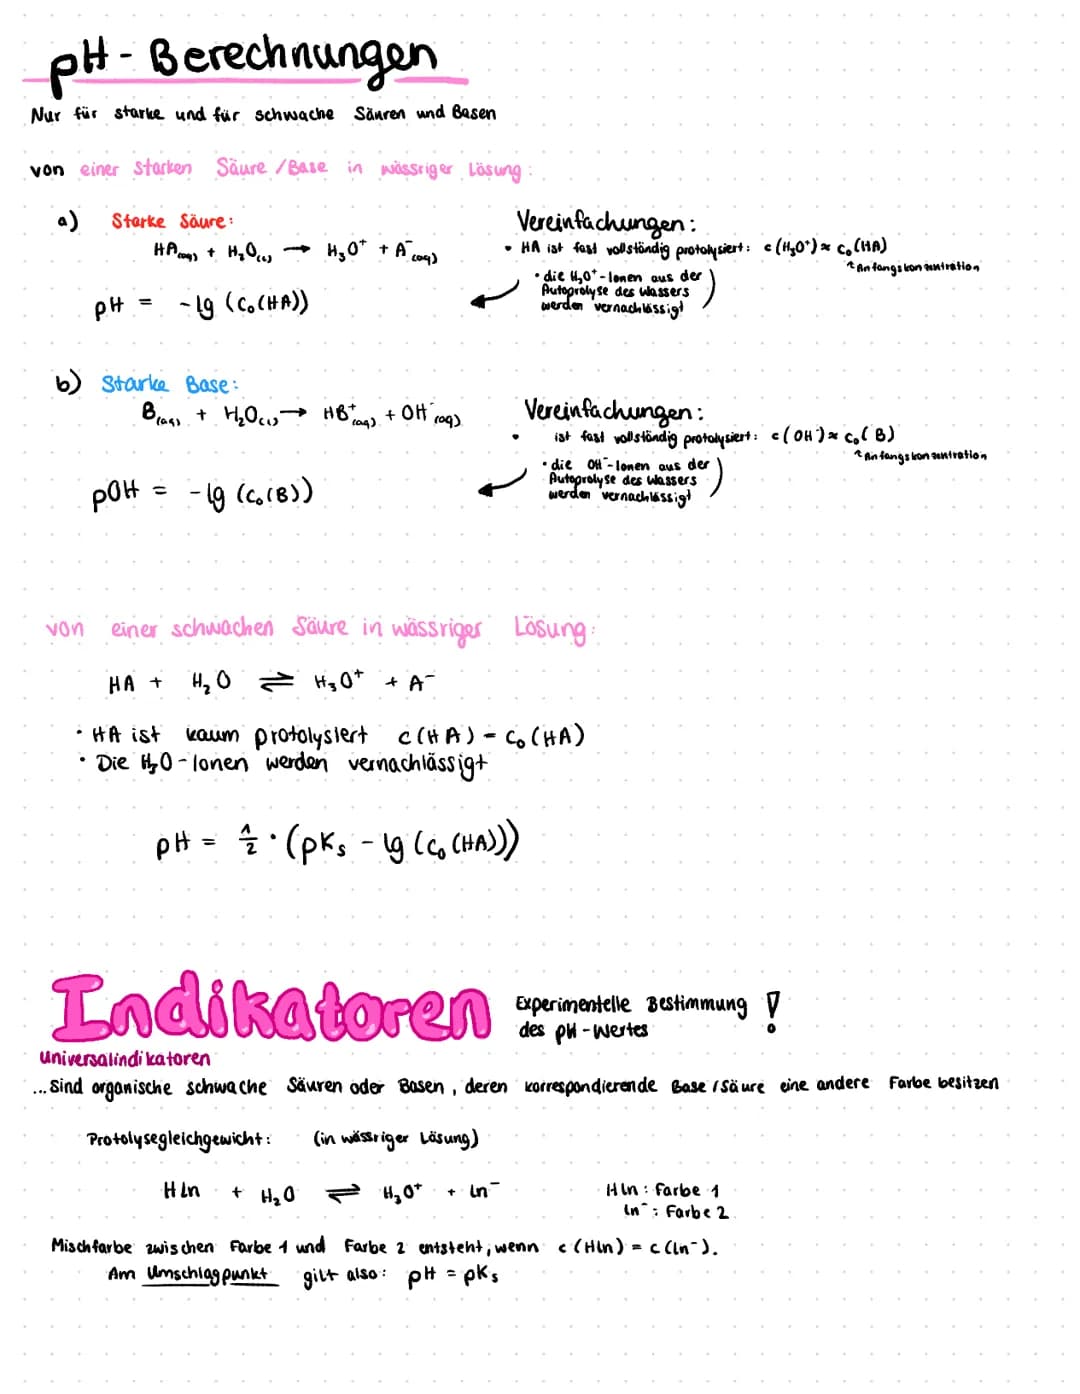 pH - Berechnungen
Nur für starke und für schwache Säuren und Basen
von einer starken Säure / Base in wässriger Lösung:
a) Starke Säure:
HA(aq) + H₂O(l) → H₃O⁺ + A⁻(aq)
pH = - lg (c₀(HA))
Vereinfachungen:
• HA ist fast vollständig protolysiert: c (H₃O⁺) ≈ c₀(HA)
↑Anfangskonzentration
• die H₃O⁺-Ionen aus der
Autoprolyse des Wassers
werden vernachlässigt
b) Starke Base:
B(aq) + H₂O(l) → HB⁺(aq) + OH⁻(aq)
pOH = - lg (c₀(B))
Vereinfachungen:
• ist fast vollständig protolysiert: c (OH⁻) ≈ c₀(B)
↑Anfangskonzentration
• die OH⁻-Ionen aus der
Autoprolyse des Wassers
werden vernachlässigt
von einer schwachen Säure in wässriger Lösung:
HA + H₂O ⇌ H₃O⁺ + A⁻
• HA ist kaum protolysiert c(HA) = c₀(HA)
• Die H₃O-Ionen werden vernachlässigt
pH = ½ · (pKₛ - lg (c₀(HA)))
Indikatoren
Experimentelle Bestimmung !
des pH-Wertes
Universalindikatoren
... Sind organische schwache Säuren oder Basen, deren korrespondierende Base / Säure eine andere Farbe besitzen
Protolysegleichgewicht: (in wässriger Lösung)
HIn + H₂O ⇌ H₃O⁺ + In⁻
HIn: Farbe 1
In⁻: Farbe 2
Mischfarbe zwischen Farbe 1 und Farbe 2 entsteht, wenn c (HIn) = c (In⁻).
Am Umschlagpunkt gilt also: pH = pKₛ